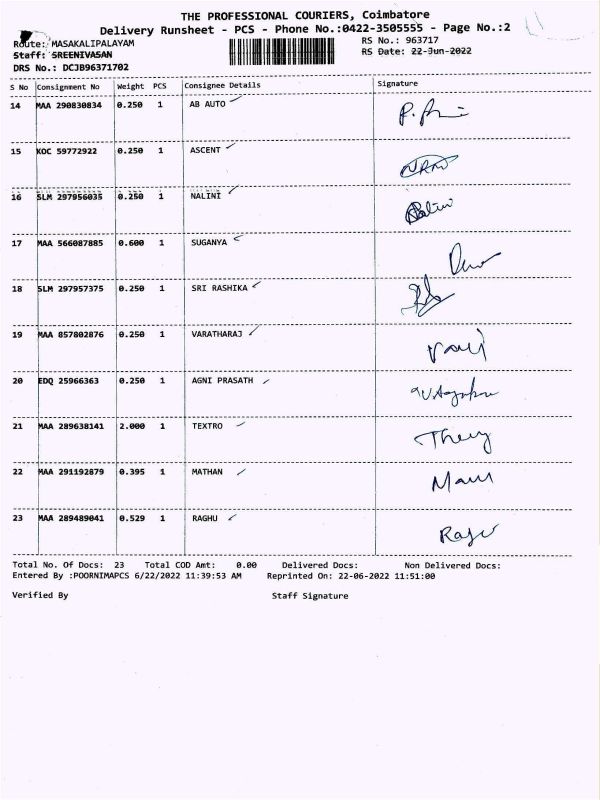 THE PROFESSIONAL COURIERS, Coimbatore
Delivery Runsheet - PCS - Phone No.:0422-3505555 - Page No.:2
Route: MASAKALIPALAYAM RS No.: 963717
Staff: SREENIVASAN RS Date: 22-Jun-2022
DRS No.: DCJB96371702
S No Consignment No Weight PCS Consignee Details Signature
14 MAA 290830834 0.250 1 AB AUTO
15 KOC 59772922 0.250 1 ASCENT
16 SLM 297956035 0.250 1 NALINI
17 MAA 566087885 0.600 1 SUGANYA
18 SLM 297957375 0.250 1 SRI RASHIKA
19 MAA 857802876 0.250 1 VARATHARAJ
20 EDQ 25966363 0.250 1 AGNI PRASATH
21 MAA 289638141 2.000 1 TEXTRO
22 MAA 291192879 0.395 1 MATHAN
23 MAA 289489041 0.529 1 RAGHU
Total No. Of Docs: 23 Total COD Amt: 0.00 Delivered Docs: Non Delivered Docs:
Entered By :POORNIMAPCS 6/22/2022 11:39:53 AM Reprinted On: 22-06-2022 11:51:00
Verified By Staff Signature